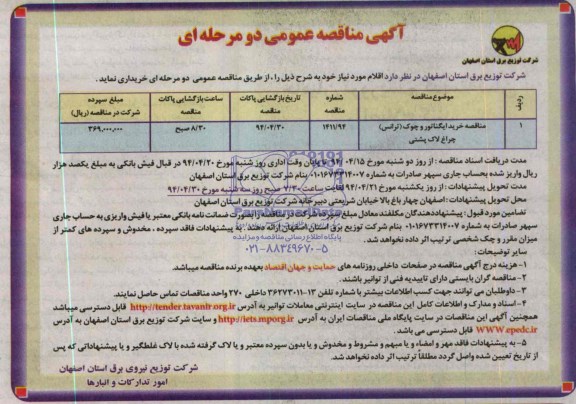 آگهی مناقصه عمومی دو مرحله ای
شرکت توزیع برق استان اصفهان
شرکت توزیع برق استان اصفهان در نظر دارد اقلام مورد نیاز خود به شرح ذیل را، از طریق مناقصه عمومی دو مرحله ای خریداری نماید.
ردیف
موضوع مناقصه
شماره مناقصه
تاریخ بازگشایی پاکات مناقصه
ساعت بازگشایی پاکات مناقصه
مبلغ سپرده شرکت در مناقصه (ریال)
۱
مناقصه خرید ایگناتور و چوک (ترانس) چراغ لاک پشتی
۱۴۱۱/۹۴
۹۴/۰۴/۳۰
۸/۳۰ صبح
۳۶۹,۰۰۰,۰۰۰
مدت دریافت اسناد مناقصه : از روز دو شنبه مورخ ۹۴/۰۴/۱۵ تا پایان وقت اداری روز شنبه مورخ ۹۴/۰۴/۲۰ در قبال فیش بانکی به مبلغ یکصد هزار
ریال واریز شده بحساب جاری سپهر صادرات به شماره ۰۱۰۱۶۷۳۳۱۴۰۰۷ بنام شرکت توزیع برق استان اصفهان
مدت تحویل پیشنهادات : از روز یکشنبه مورخ ۹۴/۰۴/۲۱ لغایت ساعت ۷/۳۰ صبح روز سه شنبه مورخ ۹۴/۰۴/۳۰
محل تحویل پیشنهادات :اصفهان چهار باغ بالا خیابان شریعتی دبیرخانه شرکت توزیع برق استان اصفهان
تضامین مورد قبول : پیشنهاددهندگان مکلفند معادل مبلغ سپرده شرکت در مناقصه را بصورت ضمانت نامه بانکی معتبر یا فیش واریزی به حساب جاری
سپهر صادرات به شماره ۰۱۰۱۶۷۳۳۱۴۰۰۷ بنام شرکت توزیع برق استان اصفهان ارائه دهند. به پیشنهادات فاقد سپرده ، مخدوش و سپرده های کمتر از
میزان مقرر و چک شخصی ترتیب اثر داده نخواهد شد.
سایر توضیحات:
۱- هزینه درج آگهی مناقصه در صفحات داخلی روزنامه های حمایت و جهان اقتصاد بعهده برنده مناقصه میباشد.
۲- مناقصه گران بایستی دارای تاییدیه فنی از توانیر باشند.
۳- داوطلبان می توانند جهت کسب اطلاعات بیشتر با شماره تلفن ۱۳-۳۶۲۷۳۰۱۱ داخلی ۲۷۰ واحد مناقصات تماس حاصل نمایند.
۴- اسناد و مدارک و اطلاعات کامل این مناقصه در سایت اینترنتی معاملات توانیر به آدرس http://tender.tavanir.org.ir قابل دسترسی میباشد
همچنین آگهی این مناقصات در سایت پایگاه ملی مناقصات ایران به آدرس http://iets.mporg.ir و سایت شرکت توزیع برق استان اصفهان به آدرس
www.epedc.ir قابل دسترسی می باشد.
۵- به پیشنهادات فاقد مهر و امضاء و یا مبهم و مشروط و مخدوش و یا بدون سپرده معتبر و یا لاک گرفته شده یا لاک غلطگیر و یا پیشنهاداتی که پس
از تاریخ تعیین شده واصل گردد مطلقا ترتیب اثر داده نخواهد شد.
شرکت توزیع نیروی برق استان اصفهان
امور تدارکات و انبارها
پایگاه اطلاع رسانی مناقصه و مزایده
۰۲۱-۸۸۳۴۹۶۷۰-۵